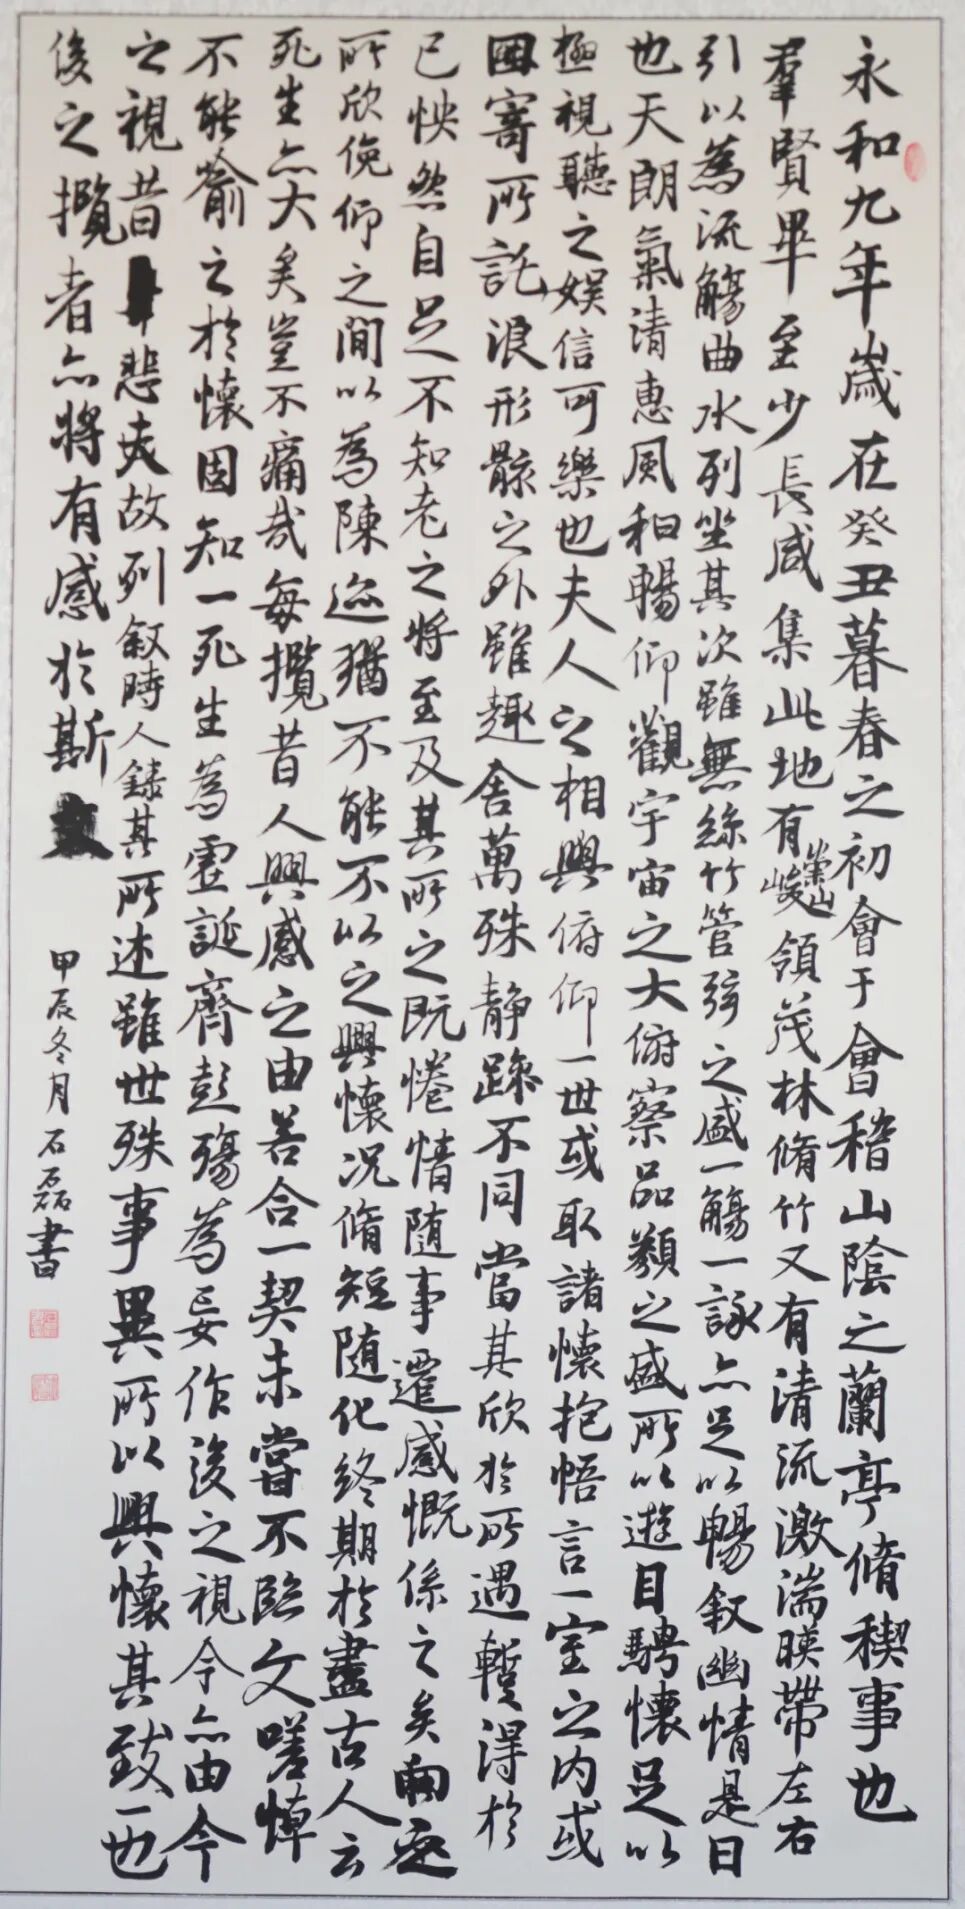 永和九年歲在癸丑暮春之初會于會稽山陰之蘭亭脩稧事也
羣賢畢至少長咸集此地有崇山峻領茂林脩竹又有清流激湍暎帶左右
引以為流觴曲水列坐其次雖無絲竹管弦之盛一觴一詠亦足以暢叙幽情是日
也天朗氣清惠風和暢仰觀宇宙之大俯察品類之盛所以遊目騁懷足以
極視聽之娛信可樂也夫人之相與俯仰一世或取諸懷抱悟言一室之內或
因寄所託浪形骸之外雖趣舍萬殊靜躁不同當其欣於所遇蹔得於
己怏然自足不知老之將至及其所之既惓情隨事遷感慨係之矣向之
所欣俛仰之間以為陳迹猶不能不以之興懷況脩短隨化終期於盡古人云
死生亦大矣豈不痛哉每攬昔人興感之由若合一契未嘗不臨文嗟悼
不能喻之於懷固知一死生為虛誕齊彭殤為妄作後之視今亦由今
之視昔悲夫故列叙時人錄其所述雖世殊事異所以興懷其致一也
後之攬者亦將有感於斯
甲辰冬月石磊書